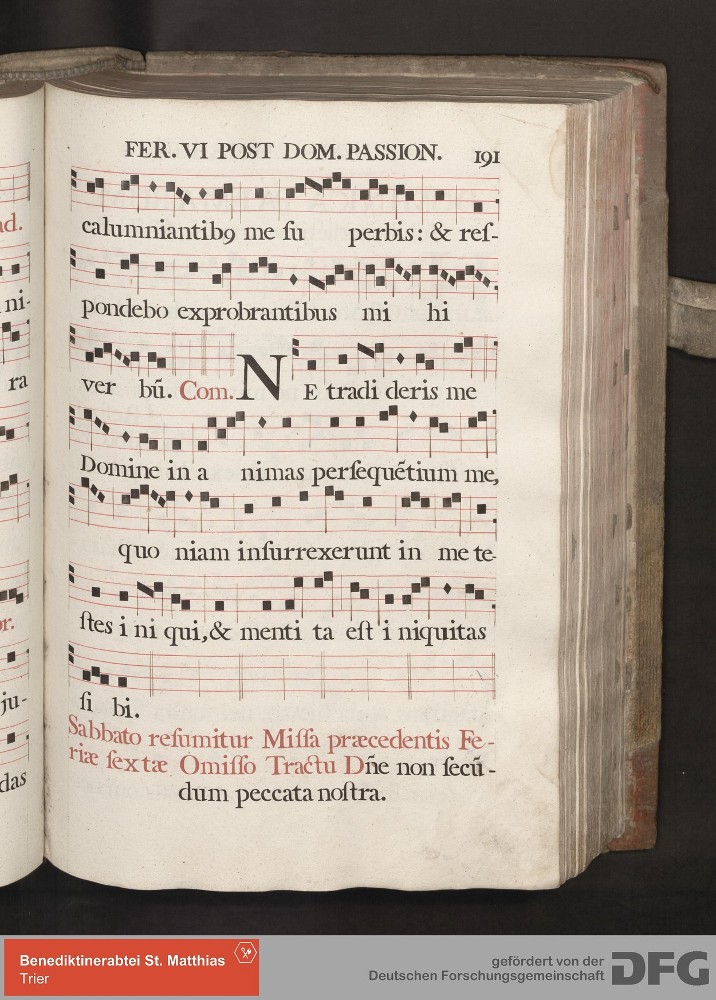 FER. VI POST DOM. PASSION. 191
calumniantib9 me ſu perbis: & reſ-
pondebo exprobrantibus mi hi
ver bũ. Com. NE tradi deris me
Domine in a nimas perſequẽtium me,
quo niam inſurrexerunt in me te-
ſtes i ni qui, & menti ta eſt i niquitas
ſi bi.
Sabbato reſumitur Miſſa præcedentis Fe-
riæ ſextæ Omiſſo Tractu Dñe non ſecũ-
dum peccata noſtra.
ad.
ni-
ra
or.
ju-
das
Benediktinerabtei St. Matthias
Trier
gefördert von der
Deutschen Forschungsgemeinschaft
DFG